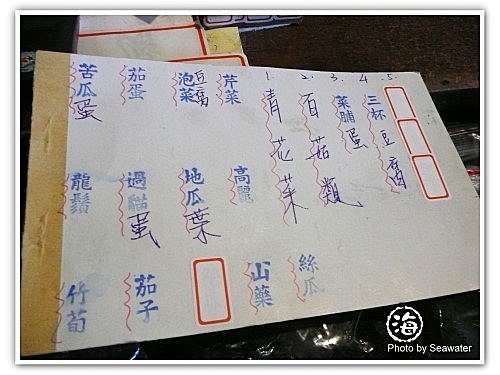 苦瓜蛋
茄蛋
泡菜豆腐
芹菜
1. 青花菜
2. 百菇類
3. 菜脯蛋
4. 三杯豆腐
5.
龍鬚
過貓蛋
地瓜葉
高麗
竹筍
茄子
山藥
絲瓜
海
Photo by Seawater